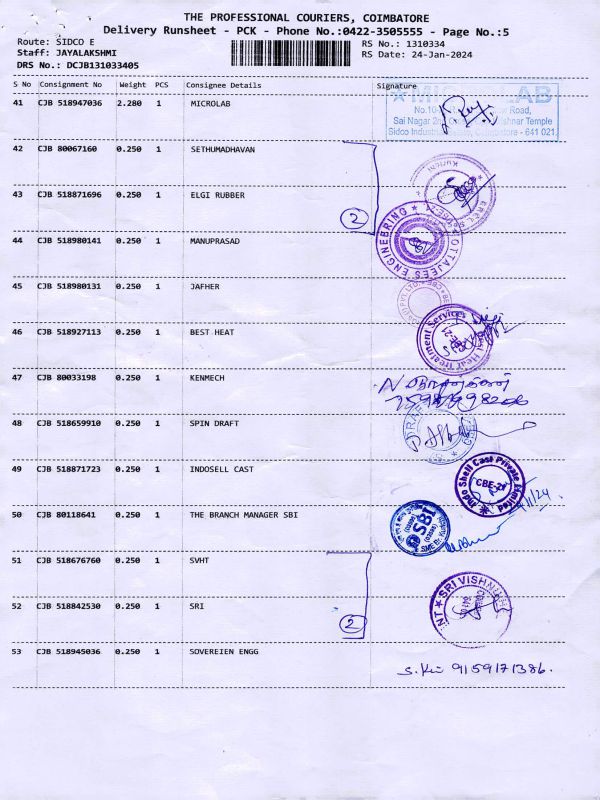 THE PROFESSIONAL COURIERS, COIMBATORE
Delivery Runsheet - PCK - Phone No.:0422-3505555 - Page No.:5
Route: SIDCO E
RS No.: 1310334
Staff: JAYALAKSHMI
RS Date: 24-Jan-2024
DRS No.: DCJB131033405
S No Consignment No Weight PCS Consignee Details Signature
41 CJB 518947036 2.280 1 MICROLAB
LAB
No.10- Road,
Sai Nagar Temple
Sidco Coimbatore - 641 021
42 CJB 80067160 0.250 1 SETHUMADHAVAN
43 CJB 518871696 0.250 1 ELGI RUBBER
2
Kurichi
44 CJB 518980141 0.250 1 MANUPRASAD
OTTAJEES ENGINEERING
45 CJB 518980131 0.250 1 JAFHER
46 CJB 518927113 0.250 1 BEST HEAT
Heat Treatment Services
47 CJB 80033198 0.250 1 KENMECH
48 CJB 518659910 0.250 1 SPIN DRAFT
49 CJB 518871723 0.250 1 INDOSELL CAST
Indo Shell Cast Private Limited
CBE-21
50 CJB 80118641 0.250 1 THE BRANCH MANAGER SBI
SBI
51 CJB 518676760 0.250 1 SVHT
52 CJB 518842530 0.250 1 SRI
2
SRI VISHNU
53 CJB 518945036 0.250 1 SOVEREIEN ENGG
9159171386.